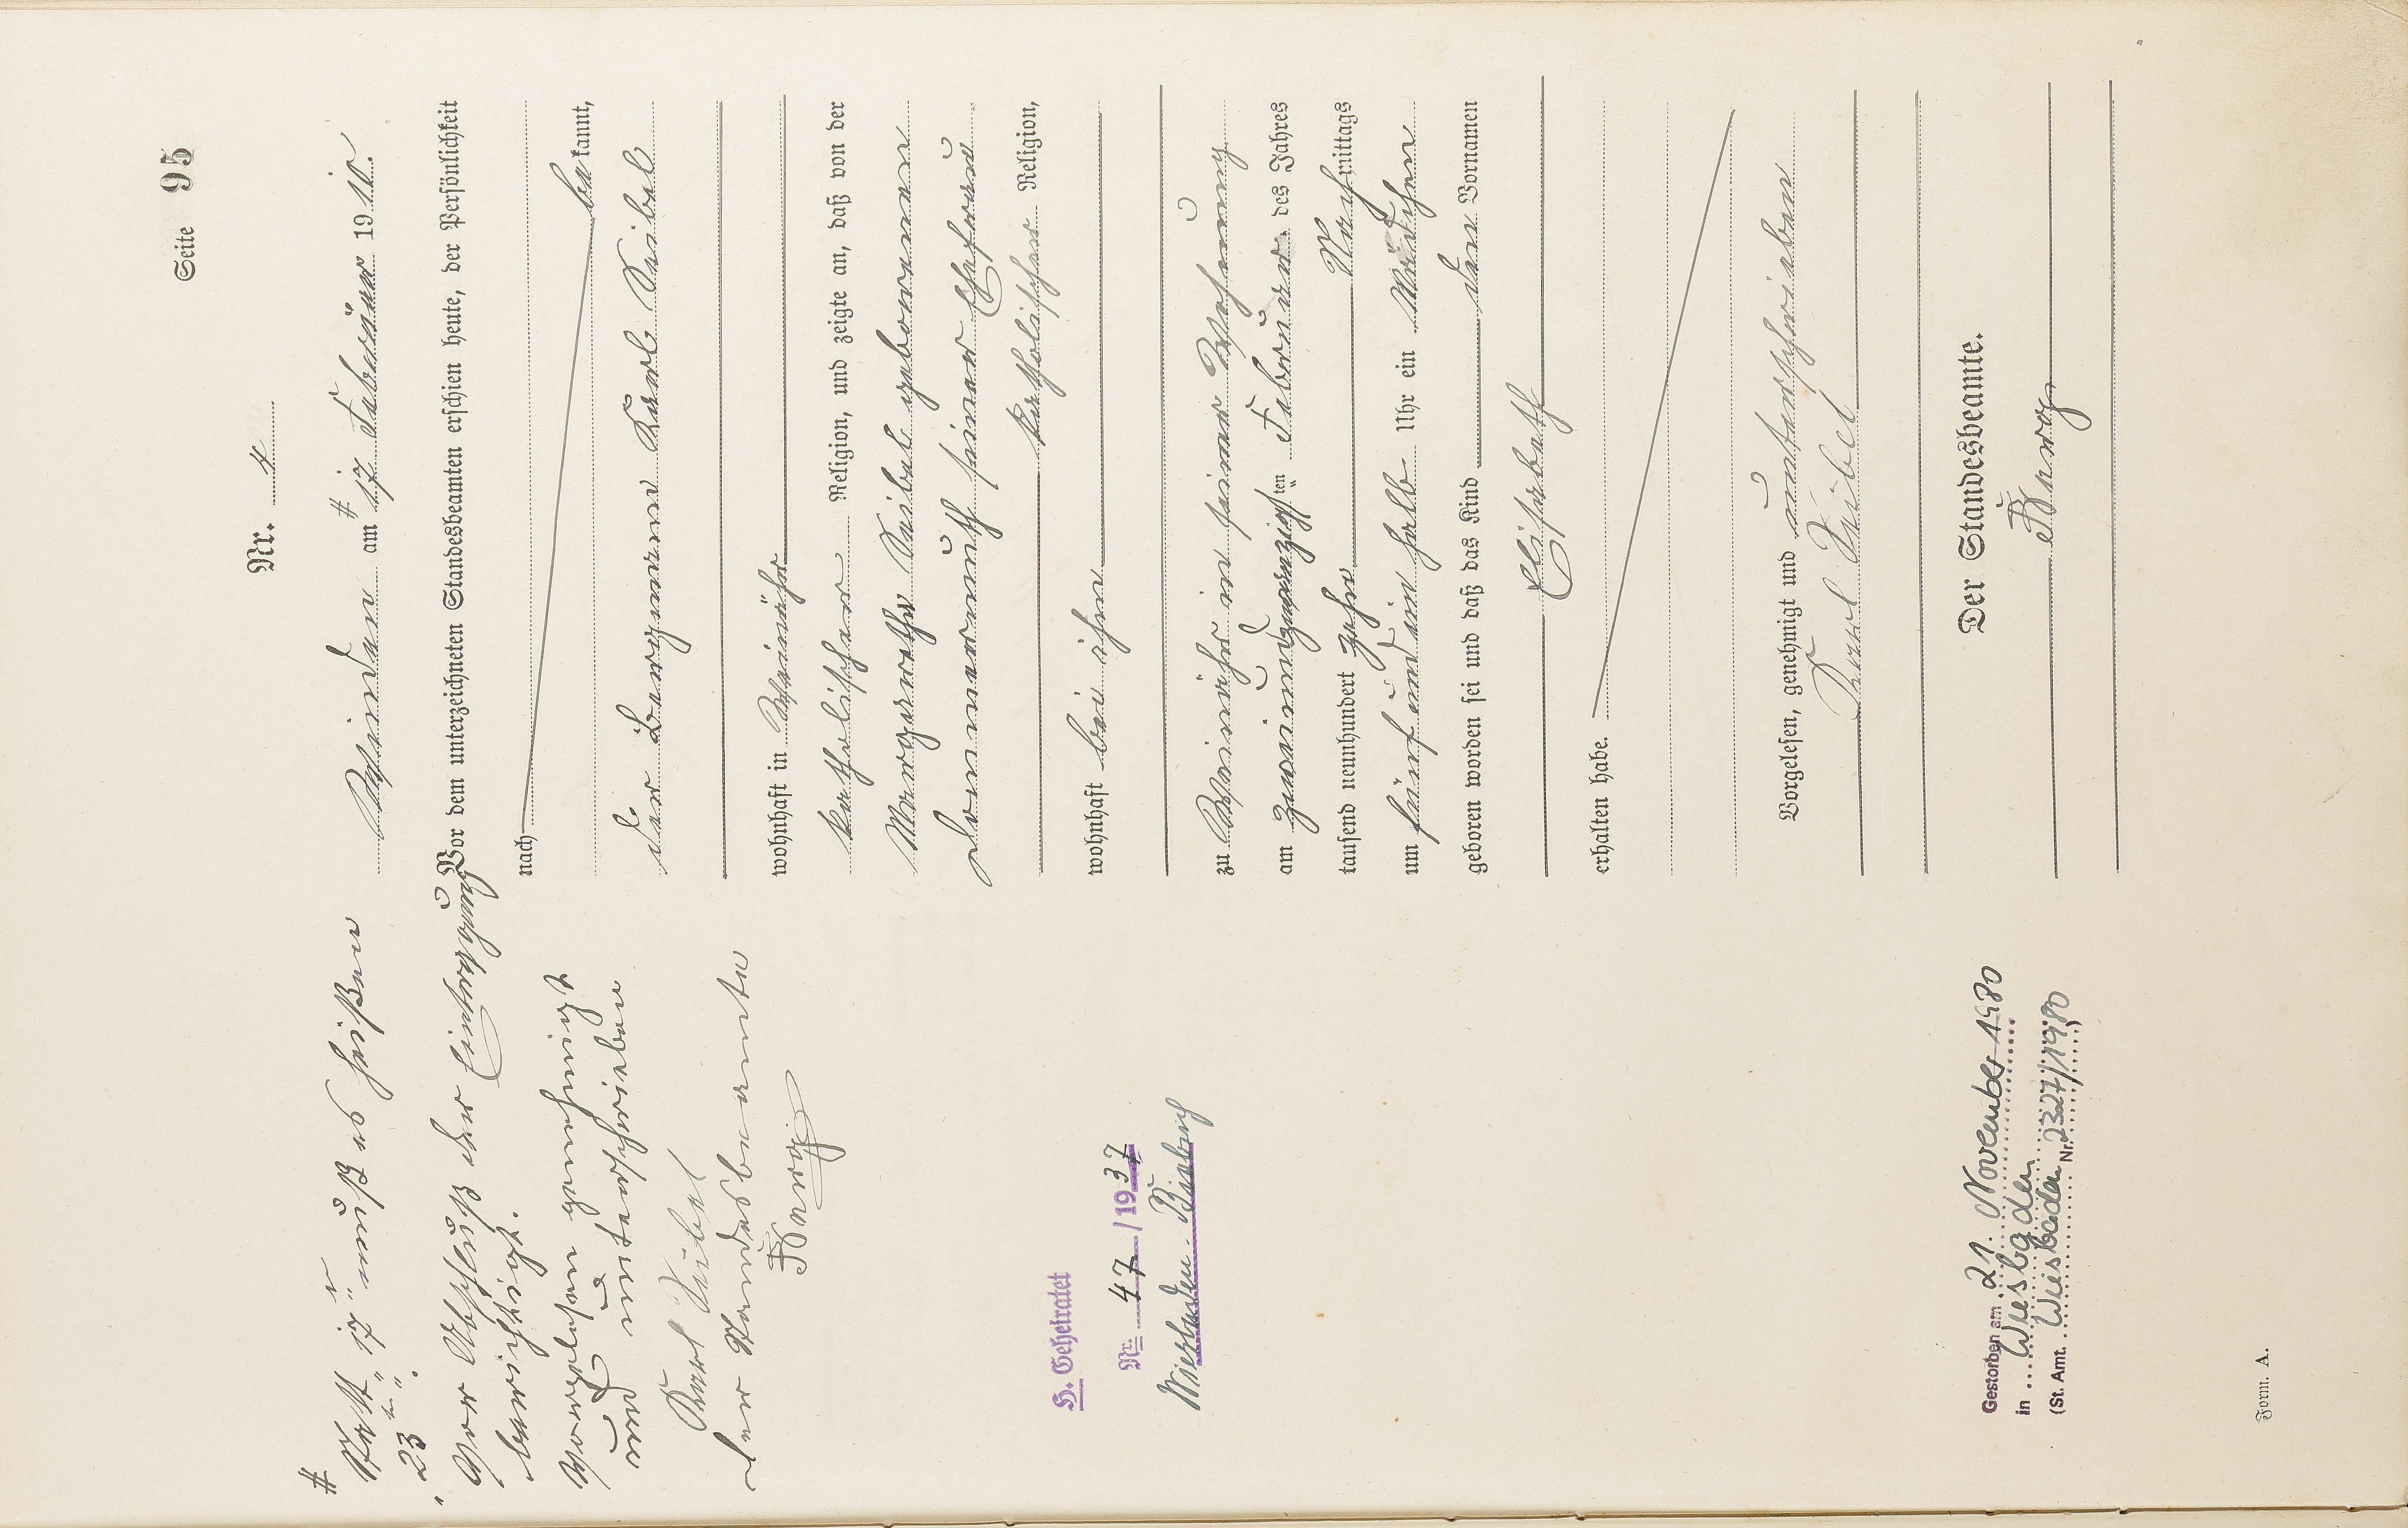 Seite 95
Nr. 4
Weinähr am # 17 Februar 1910.
Vor dem unterzeichneten Standesbeamten erschien heute, der Persönlichkeit
nach
be kannt,
der Bergmann Karl Seibel
wohnhaft in Weinähr
katholischer Religion, und zeigte an, daß von der
Margarethe Seibel geborenen
Dommermuth seiner Ehefrau
katholischer Religion,
wohnhaft bei ihm
zu Weinähr in seiner Wohnung
am zweiundzwanzigsten Februar des Jahres
tausend neunhundert zehn Nachmittags
um fünf und ein halb Uhr ein Mädchen
geboren worden sei und daß das Kind den Vornamen
Elisabeth
erhalten habe.
Vorgelesen, genehmigt und unterschrieben
Karl Seibel
Der Standesbeamte.
Burg
# Statt "17" muß es heißen
"23ten".
Vor Abschluß der Eintragung
berichtigt.
Vorgelesen genehmigt
und unterschrieben
Karl Seibel
der Standesbeamte
Burg
H. Geheiratet
Nr. 47 / 1937
Wiesbaden-Biebrich
Gestorben am 21. November 1980
in Wiesbaden
(St. Amt. Wiesbaden Nr. 2327/1980)
Form. A.